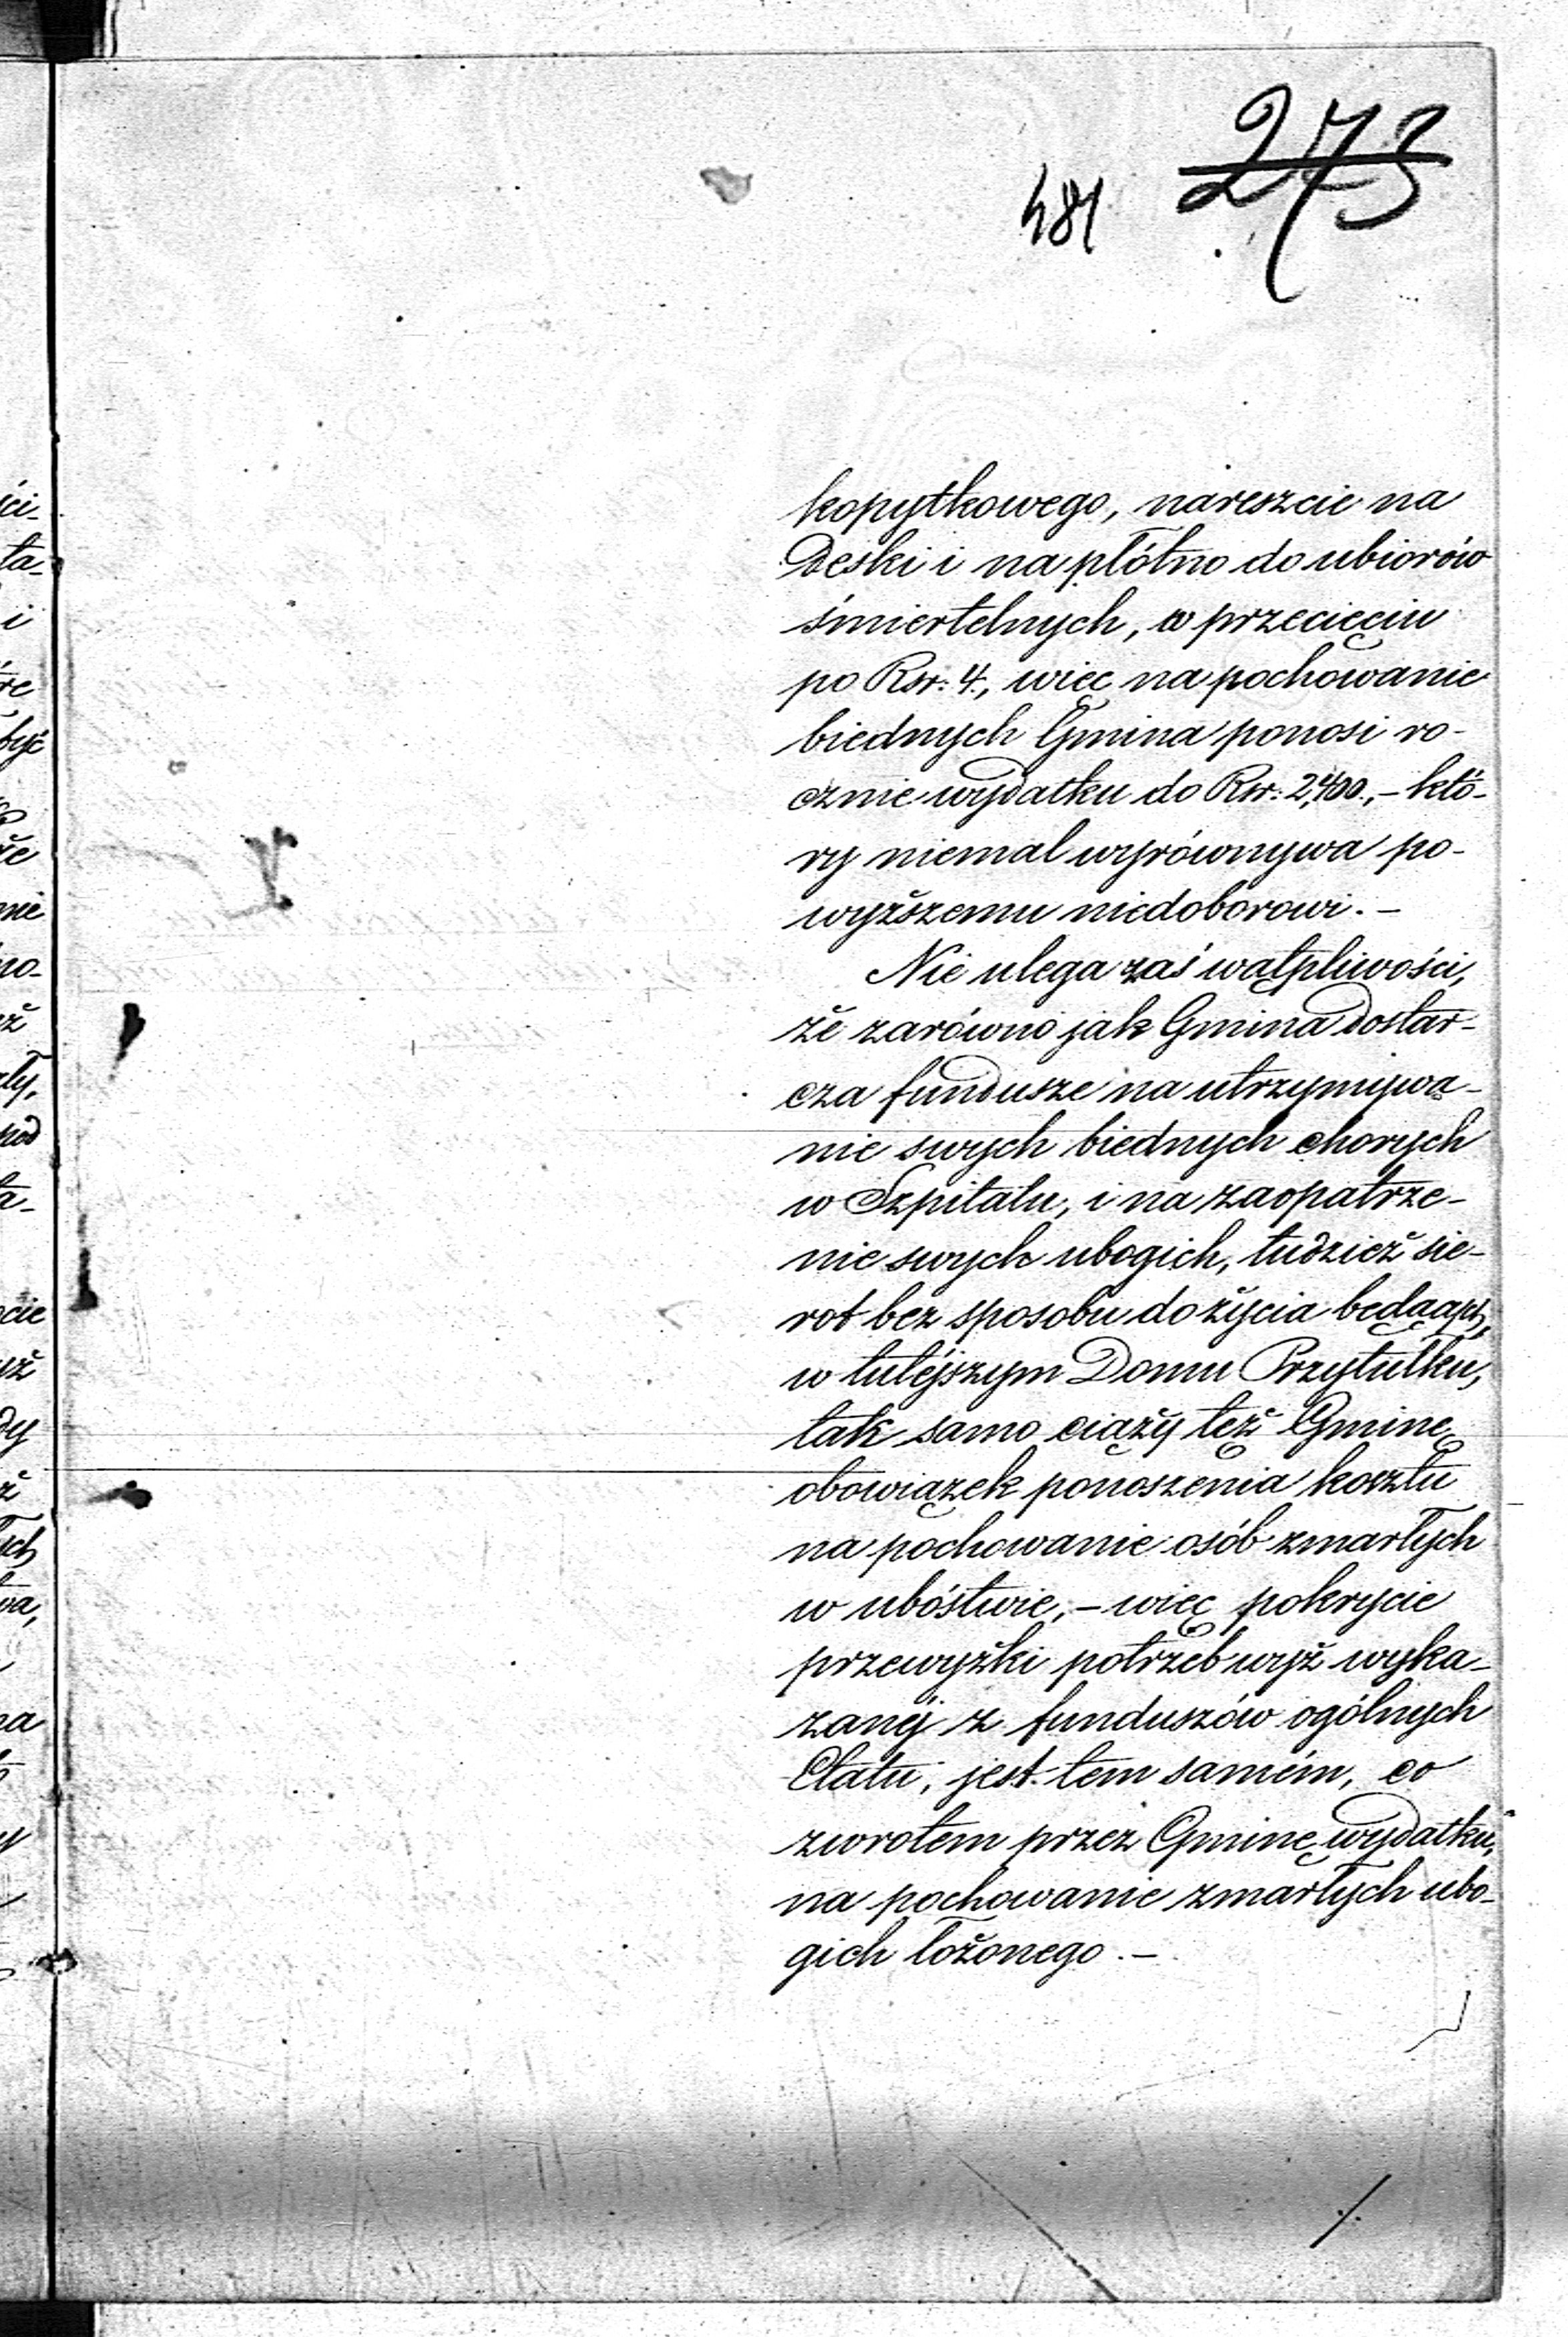 273
481
kopytkowego, nareszcie na
deski i na płótno do ubiorów
śmiertelnych, w przecięciu
po Rsr: 4., więc na pochowanie
biednych Gmina ponosi ro-
cznie wydatku do Rsr: 2,400., – któ-
ry niemal wyrównywa po-
wyższemu niedoborowi. –
Nie ulega zaś wątpliwości,
że zarówno jak Gmina dostar-
cza fundusze na utrzymywa-
nie swych biednych chorych
w Szpitalu, i na zaopatrze-
nie swych ubogich, tudzież sie-
rot bez sposobu do życia będących,
w tutéjszym Domu Przytułku,
tak samo ciąży też Gminę
obowiązek ponoszenia kosztu
na pochowanie osób zmarłych
w ubóstwie, – więc pokrycie
przewyżki potrzeb wyż wyka-
zanéj z funduszów ogólnych
Etatu, jest tem samém, co
zwrotem przez Gminę wydatku,
na pochowanie zmarłych ubo-
gich łożonego. –